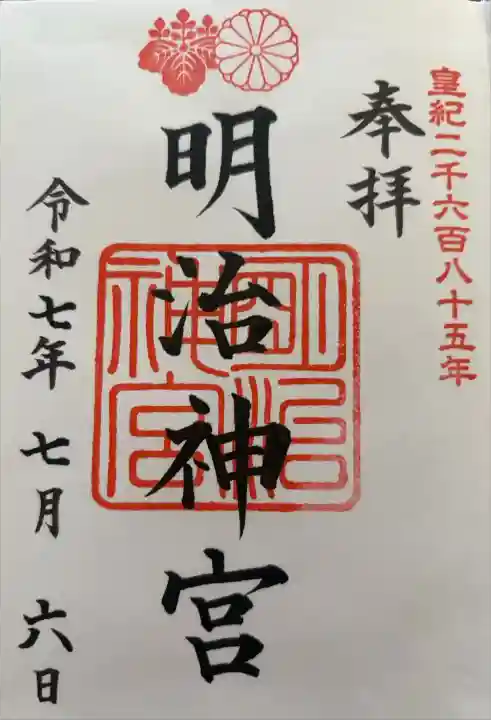 皇紀二千六百八十五年
奉拝
明治神宮
明治神宮
令和七年 七月 六日